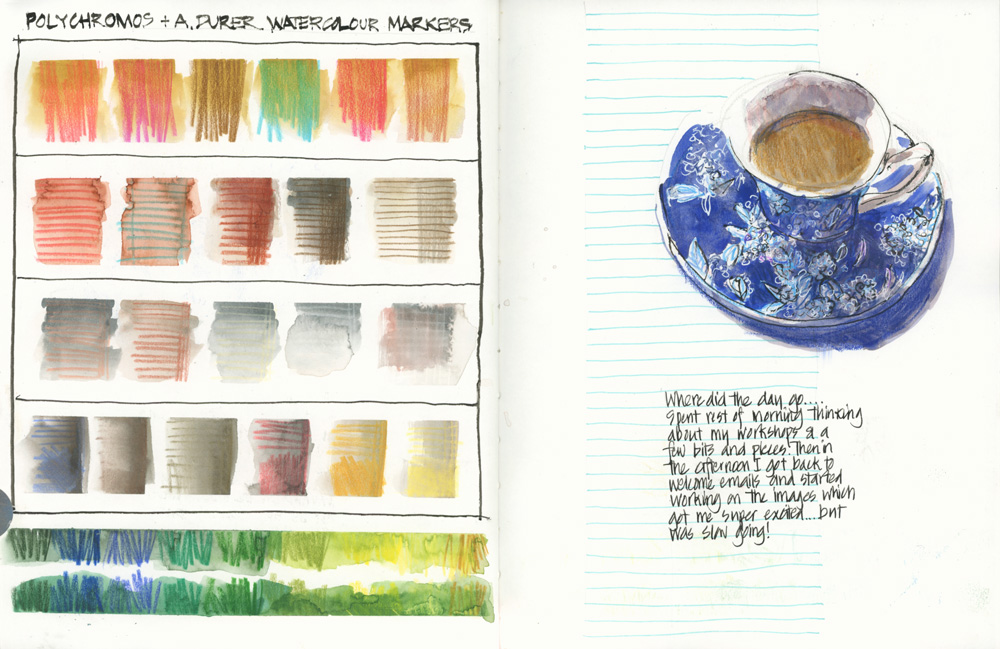 POLYCHROMOS + A. DURER WATERCOLOUR MARKERS
Where did the day go....
Spent rest of morning thinking
about my workshops & a
few bits and pieces! Then in
the afternoon I got back to
welcome emails and started
working on the images which
got me super excited....but
was slow going!